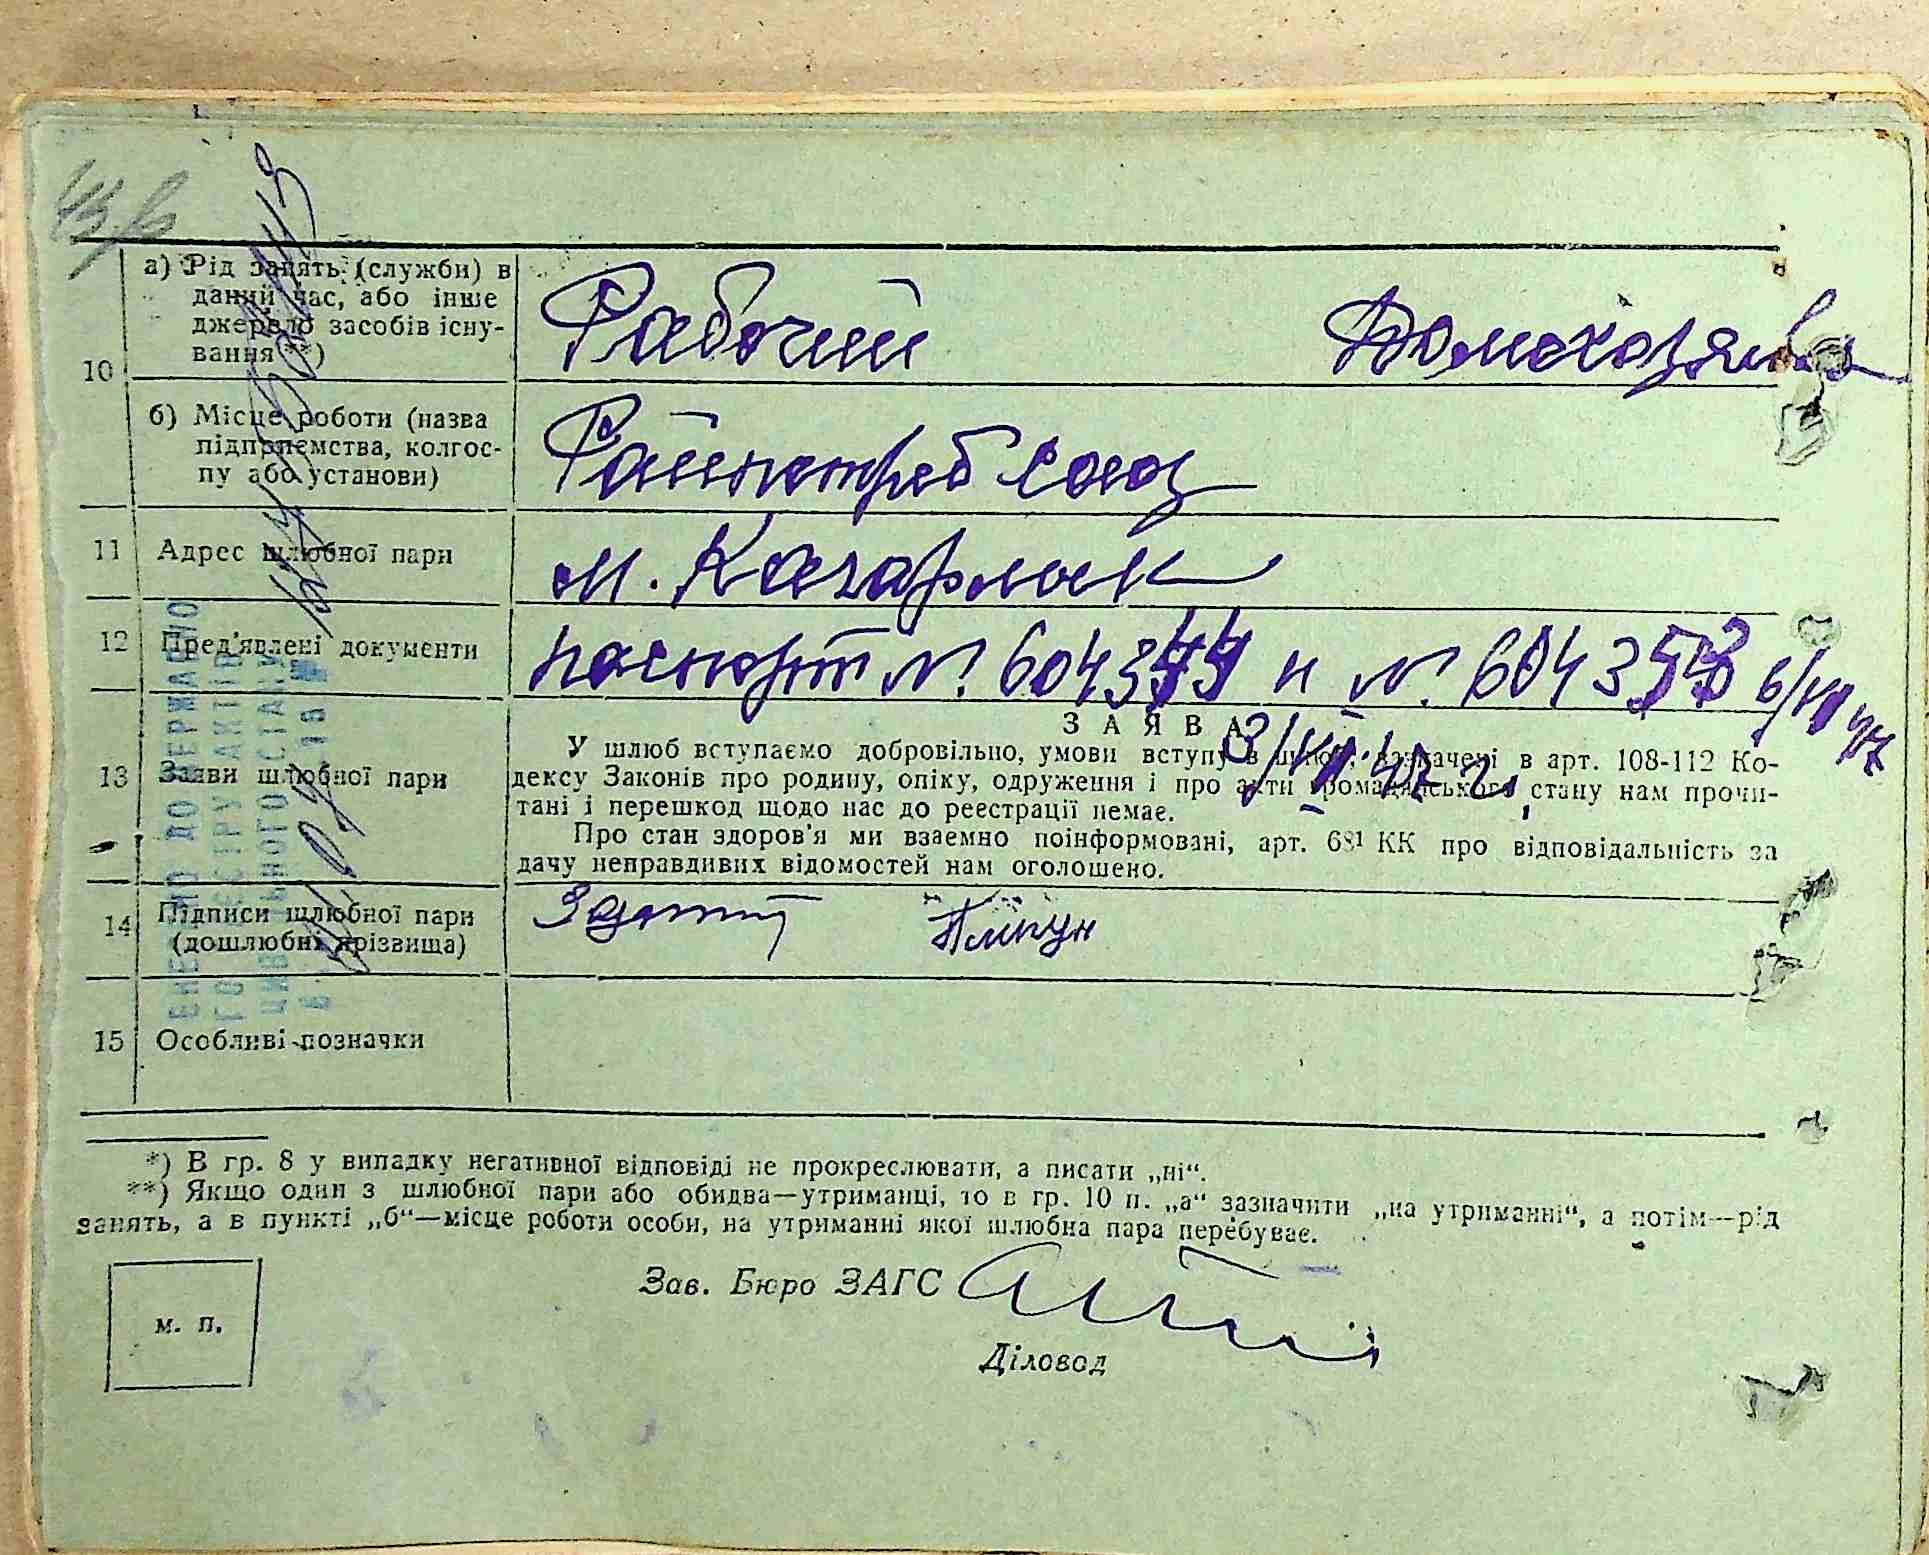 10
а) Рід занять (служби) в
даний час, або інше
джерело засобів існу-
вання **)
Рабочий
Домохозяйка
б) Місце роботи (назва
підприємства, колгос-
пу або установи)
Райпотребсоюз
11 Адрес шлюбної пари
м. Кагарлык
12 Пред'явлені документи
паспорт №
и №
13 Заяви шлюбної пари
ЗАЯВА
У шлюб вступаємо добровільно, умови вступу в шлюб, зазначені в арт. 108-112 Ко-
дексу Законів про родину, опіку, одруження і про акти громадянського стану нам прочи-
тані і перешкод щодо нас до реєстрації немає.
Про стан здоров'я ми взаємно поінформовані, арт. 68¹ КК про відповідальність за
дачу неправдивих відомостей нам оголошено.
14 Підписи шлюбної пари
(дошлюбні прізвища)
15 Особливі позначки
*) В гр. 8 у випадку негативної відповіді не прокреслювати, а писати „ні“.
**) Якщо один з шлюбної пари або обидва—утриманці, то в гр. 10 п. „а“ зазначити „на утриманні“, а потім—рід
занять, а в пункті „б“—місце роботи особи, на утриманні якої шлюбна пара перебуває.
Зав. Бюро ЗАГС
м. п.
Діловод
ВНЕСЕНО ДО ДЕРЖАВНОГО
РЕЄСТРУ АКТІВ
ЦИВІЛЬНОГО СТАНУ